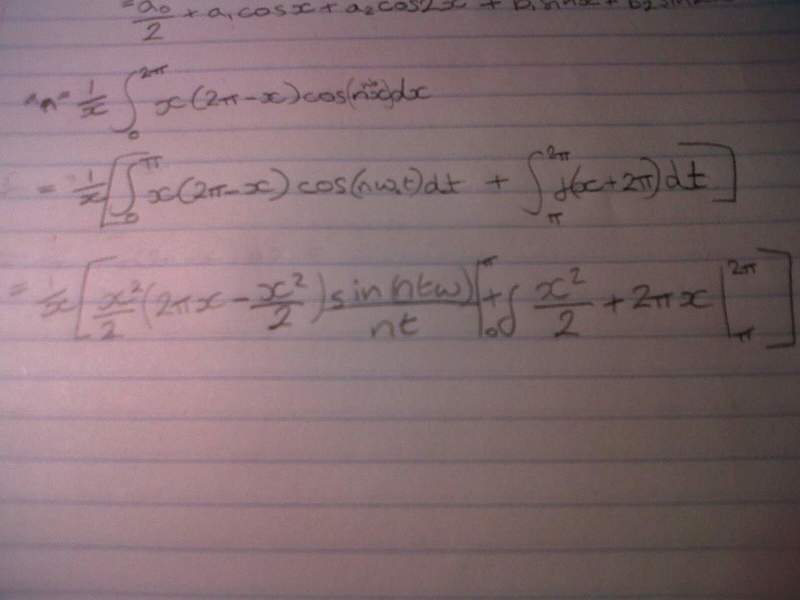 = a₀/2 + a₁cosx + a₂cos2x + b₁sinx + b₂sin
aₙ = 1/x ∫₀^2π x(2π-x)cos(nx)dx
= 1/x [∫₀^π x(2π-x)cos(nω₁t)dt + ∫_π^2π f(x+2π)dt]
= 1/x [x²/2 (2πx - x²/2) sin ntω)/nt |₀^π + ∫ x²/2 + 2πx |_π^2π]